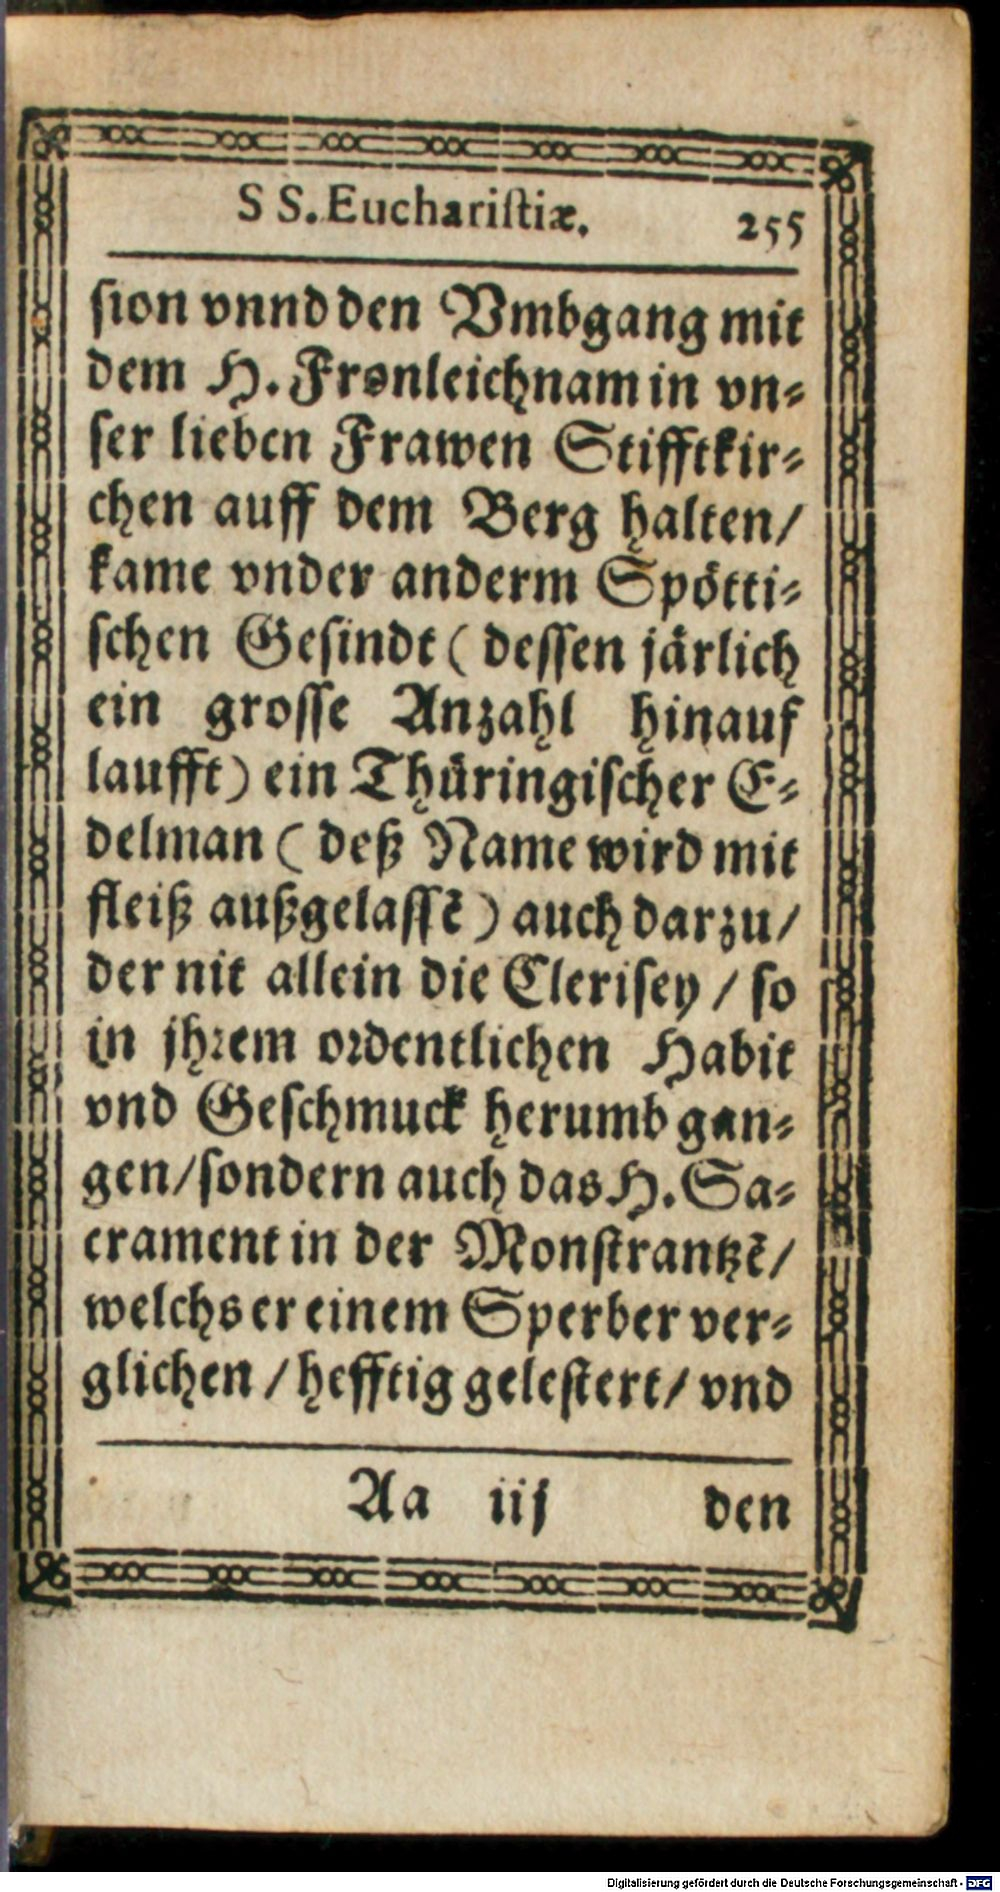 SS. Euchariſtiæ. 255
ſion vnnd den Vmbgang mit
dem H. Fronleichnam in vn⸗
ſer lieben Frawen Stifftkir⸗
chen auff dem Berg halten/
kame vnder anderm Spötti⸗
ſchen Geſindt (deſſen järlich
ein groſſe Anzahl hinauf
laufft) ein Thüringiſcher E⸗
delman (deß Name wird mit
fleiß außgelaſſẽ) auch darzu/
der nit allein die Cleriſey / ſo
in jhꝛem oꝛdentlichen Habit
vnd Geſchmuck herumb gan⸗
gen/ſondern auch das H. Sa⸗
crament in der Monſtrantzẽ/
welchs er einem Sperber ver⸗
glichen / hefftig geleſtert/ vnd
Aa iij den
Digitalisierung gefördert durch die Deutsche Forschungsgemeinschaft - DFG